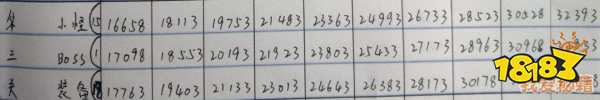 第 小怪 15 16658 18113 19753 21483 23363 24993 26733 28523 30528 32393
三 Boss 1 17098 18553 20193 21923 23803 25433 27173 28963 30968
关 装备 17763 19403 21133 23013 24643 26383 28173 30178
18183